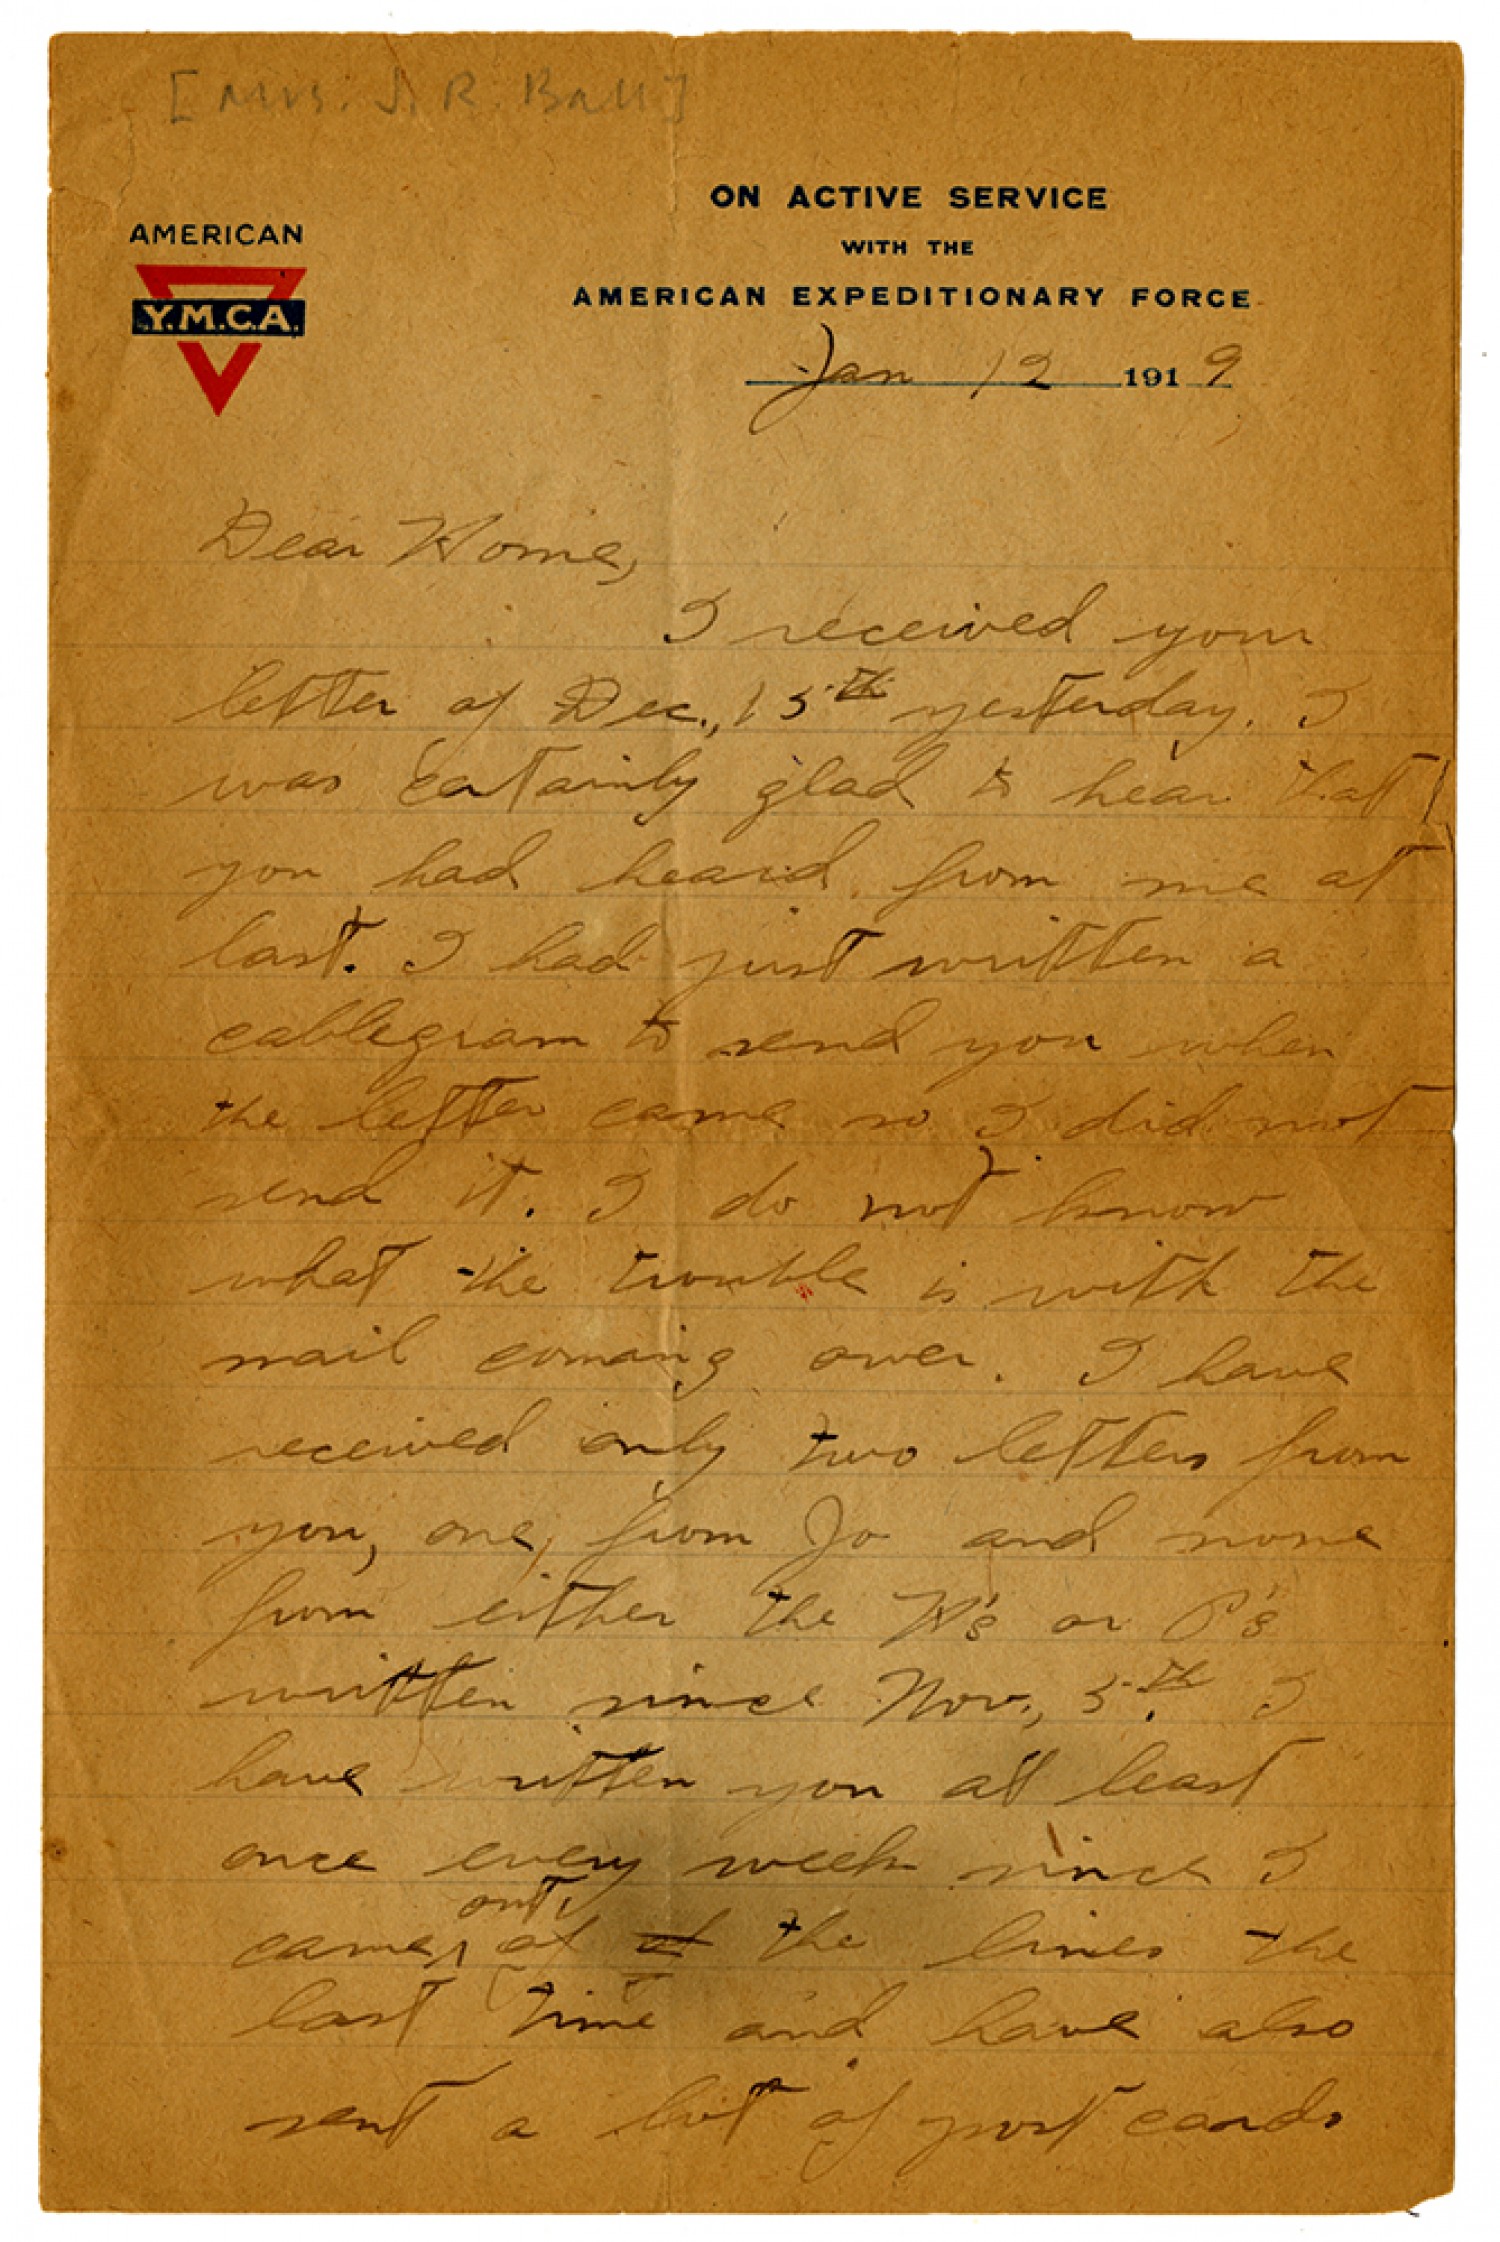 [Mrs. J. R. Ball]
ON ACTIVE SERVICE
WITH THE
AMERICAN EXPEDITIONARY FORCE
AMERICAN
Y.M.C.A.
Jan 12 1919
Dear Home,
I received your
letter of Dec., 15th yesterday. I
was certainly glad to hear that
you had heard from me at
last. I had just written a
cablegram to send you when
the letter came so I did not
send it. I do not know
what the trouble is with the
mail coming over. I have
received only two letters from
you, one from Jo and none
from either the H's or P's
written since Nov., 5th. I
have written you at least
once every week since I
came out of of the lines the
last time and have also
sent a lot of post cards